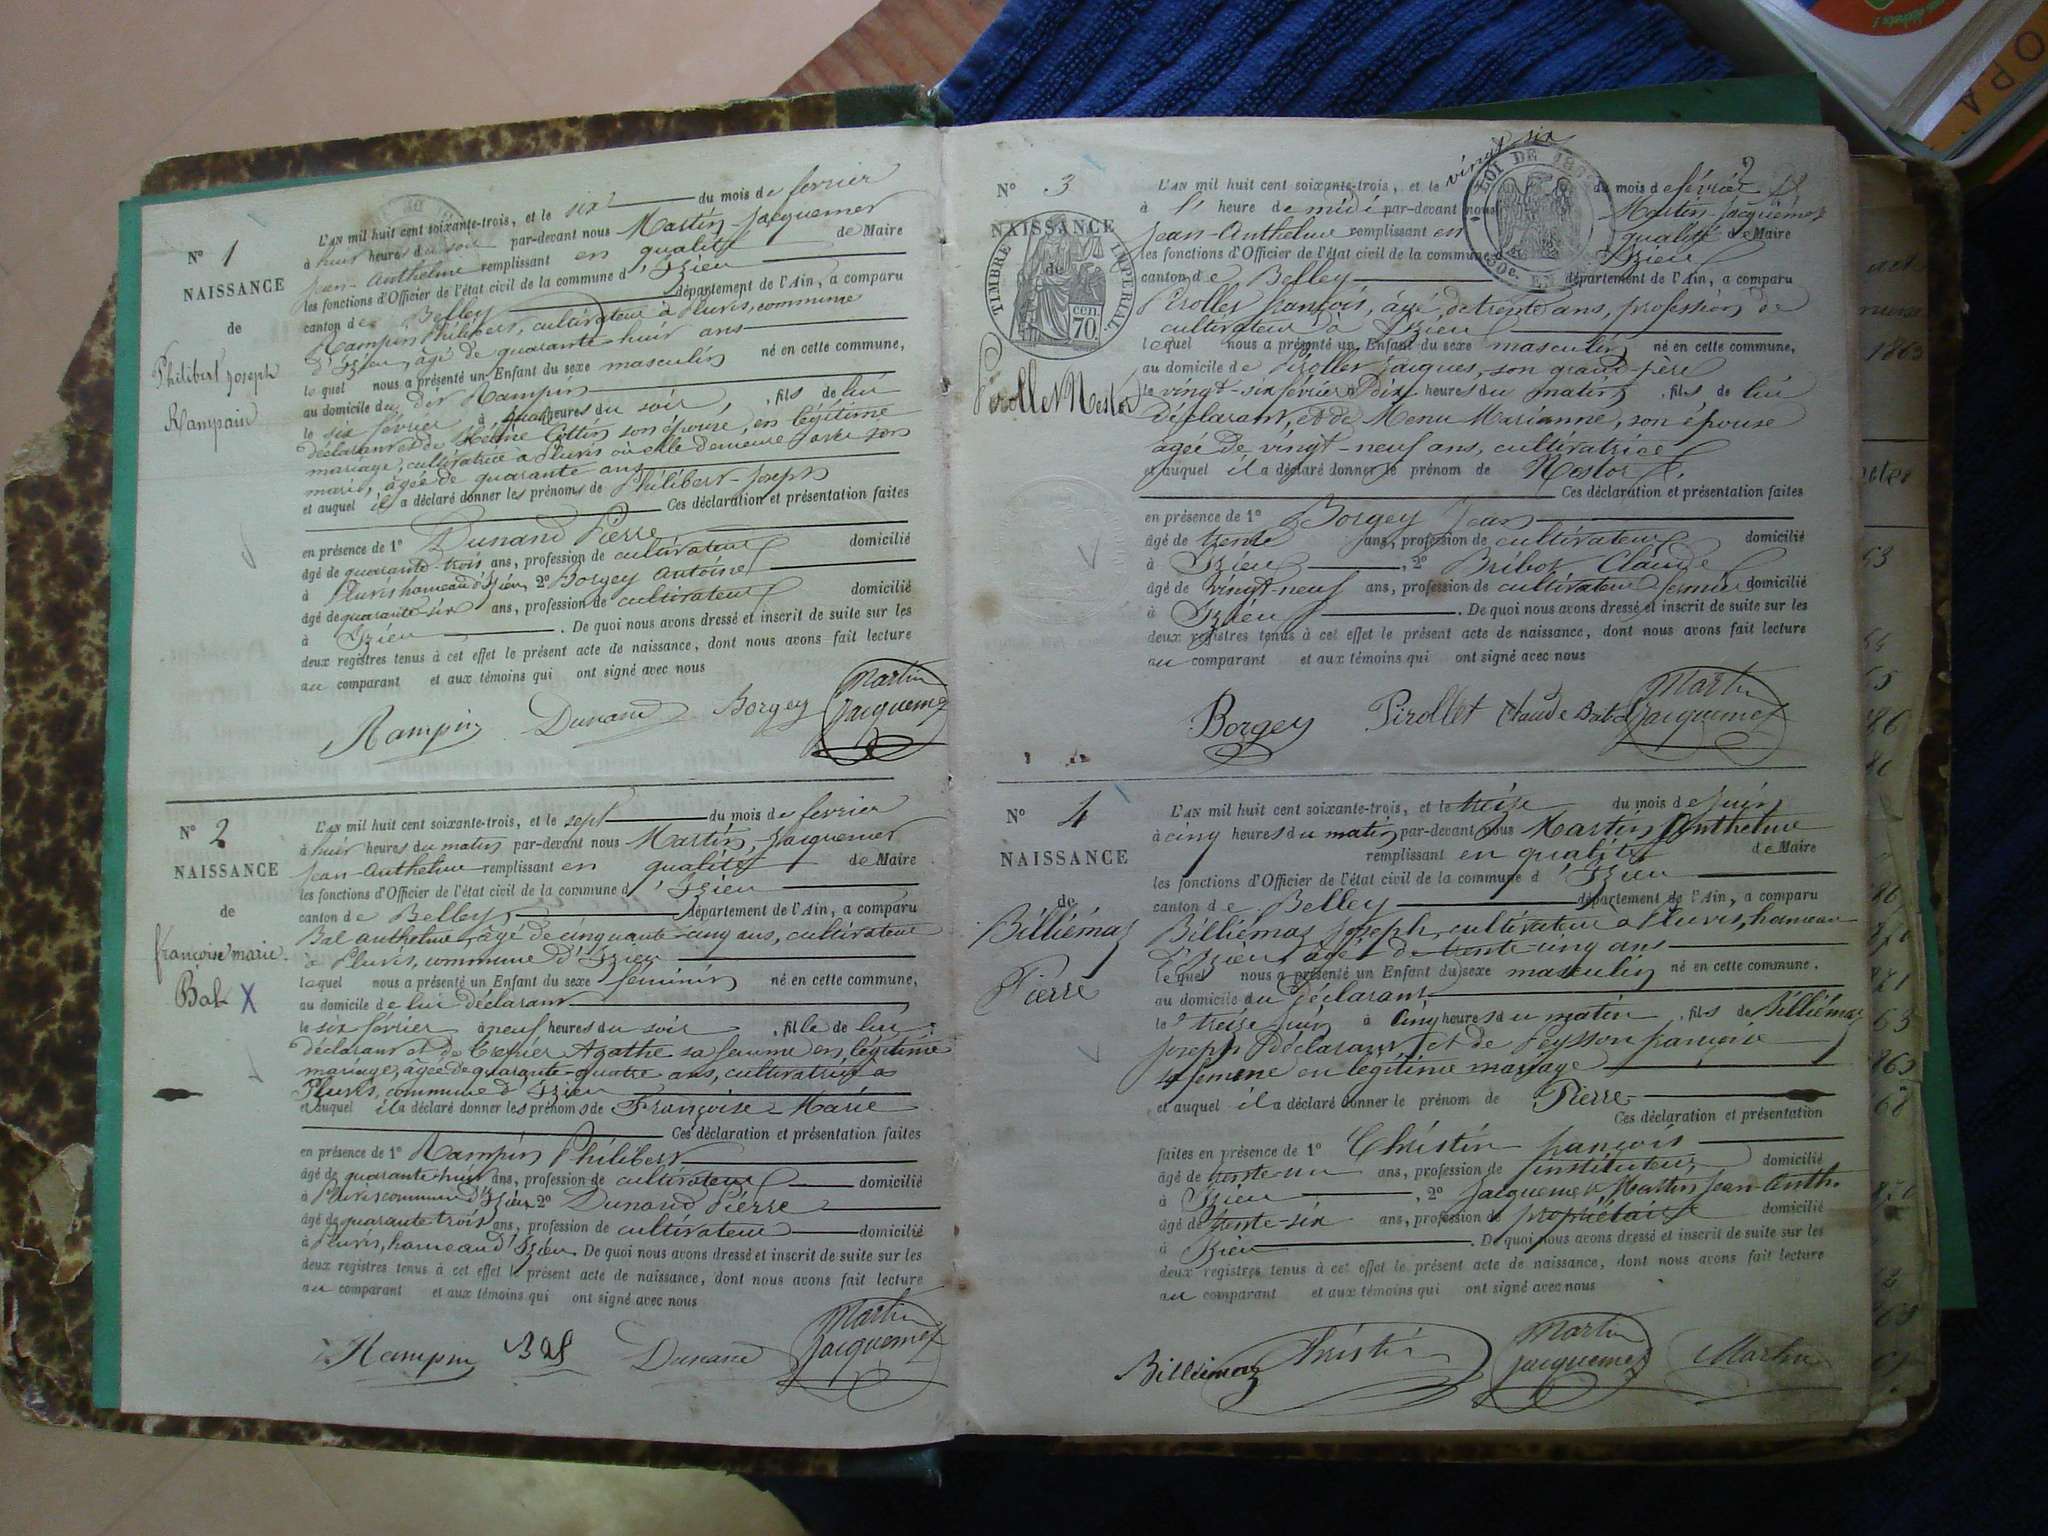 N° 1
NAISSANCE
de
Philibert Joseph
Rampain
L'AN mil huit cent soixante-trois, et le six du mois de fevrier
à huit heures du soir par-devant nous Martin-Jacquemet
Jean-Anthelme remplissant en qualité de Maire
les fonctions d'Officier de l'état civil de la commune d'Izieu
canton de Belley département de l'Ain, a comparu
Rampin Philibert, cultivateur à Pluvis, commune
d'Izieu, âgé de quarante huit ans
lequel nous a présenté un Enfant du sexe masculin né en cette commune,
au domicile du Rampin
le six fevrier à heures du soir, fils de lui
déclarant et de Cottin son épouse, en légitime
mariage, cultivatrice à Pluvis où elle demeure avec son
mari, âgée de quarante ans
et auquel il a déclaré donner les prénoms de Philibert-Joseph
Ces déclaration et présentation faites
en présence de 1° Dunand Pierre
âgé de quarante-trois ans, profession de cultivateur domicilié
à Pluvis hameau d'Izieu, 2° Borgey Antoine
âgé de quarante six ans, profession de cultivateur domicilié
à Izieu. De quoi nous avons dressé et inscrit de suite sur les
deux registres tenus à cet effet le présent acte de naissance, dont nous avons fait lecture
au comparant et aux témoins qui ont signé avec nous
Rampin Dunand Borgey Martin
Jacquemet
N° 2
NAISSANCE
de
françoise marie
Bal X
L'AN mil huit cent soixante-trois, et le sept du mois de fevrier
à huit heures du matin par-devant nous Martin, Jacquemet
Jean-Anthelme remplissant en qualité de Maire
les fonctions d'Officier de l'état civil de la commune d'Izieu
canton de Belley département de l'Ain, a comparu
Bal anthelme, âgé de cinquante-cinq ans, cultivateur
à Pluvis, commune d'Izieu
lequel nous a présenté un Enfant du sexe feminin né en cette commune,
au domicile de lui déclarant
le six février à neuf heures du soir, fille de lui
déclarant et de Agathe sa femme en légitime
mariage, agée de quarante-quatre ans, cultivatrice à
Pluvis, commune d'Izieu
et auquel il a déclaré donner les prénoms de Françoise-Marie
Ces déclaration et présentation faites
en présence de 1° Rampin Philibert
âgé de quarante huit ans, profession de cultivateur domicilié
à Pluvis commune d'Izieu 2° Dunand Pierre
âgé de quarante trois ans, profession de cultivateur domicilié
à Pluvis, hameau d'Izieu. De quoi nous avons dressé et inscrit de suite sur les
deux registres tenus à cet effet le présent acte de naissance, dont nous avons fait lecture
au comparant et aux témoins qui ont signé avec nous
Rampin Bal Dunand Martin
Jacquemet
N° 3
NAISSANCE
de
TIMBRE IMPERIAL
70 cen.
Pirollet Nestor
LOI DE
50c. EN
vingt six
L'AN mil huit cent soixante-trois, et le du mois de février
à l'heure de midi par-devant nous Martin-Jacquemet
Jean-Anthelme remplissant en qualité de Maire
les fonctions d'Officier de l'état civil de la commune d'Izieu
canton de Belley département de l'Ain, a comparu
Pirollet françois, âgé de trente ans, profession de
cultivateur à Izieu
lequel nous a présenté un Enfant du sexe masculin né en cette commune,
au domicile de Pirollet Jacques, son grand-père
le vingt-six février à Dix heures du matin, fils de lui
déclarant, et de Menu Marianne, son épouse
agée de vingt-neuf ans, cultivatrice
et auquel il a déclaré donner le prénom de Nestor
Ces déclaration et présentation faites
en présence de 1° Borgey Jean
âgé de trente ans, profession de cultivateur domicilié
à Izieu, 2° Claude
âgé de vingt-neuf ans, profession de cultivateur fermier domicilié
à Izieu. De quoi nous avons dressé et inscrit de suite sur les
deux registres tenus à cet effet le présent acte de naissance, dont nous avons fait lecture
au comparant et aux témoins qui ont signé avec nous
Borgey Pirollet Claude Martin
Jacquemet
N° 4
NAISSANCE
de
Billiémaz
Pierre
L'AN mil huit cent soixante-trois, et le treize du mois de juin
à cinq heures du matin par-devant nous Martin Anthelme
remplissant en qualité de Maire
les fonctions d'Officier de l'état civil de la commune d'Izieu
canton de Belley département de l'Ain, a comparu
Billiémaz Joseph, cultivateur à Pluvis, hameau
d'Izieu, âgé de trente-cinq ans
lequel nous a présenté un Enfant du sexe masculin né en cette commune.
au domicile du Déclarant
le treize Juin à Cinq heures du matin, fils de Billiémaz
Joseph Déclarant, et de Peysson françoise
sa femme en légitime mariage
et auquel il a déclaré donner le prénom de Pierre
Ces déclaration et présentation
faites en présence de 1° Christin françois
âgé de trente-un ans, profession de instituteur domicilié
à Izieu, 2° Jacquemet Martin Jean-Anth.
âgé de trente-six ans, profession de propriétaire domicilié
à Izieu. De quoi nous avons dressé et inscrit de suite sur les
deux registres tenus à cet effet le présent acte de naissance, dont nous avons fait lecture
au comparant et aux témoins qui ont signé avec nous
Billiemaz Christin Martin
Jacquemet Martin
1863
OPA